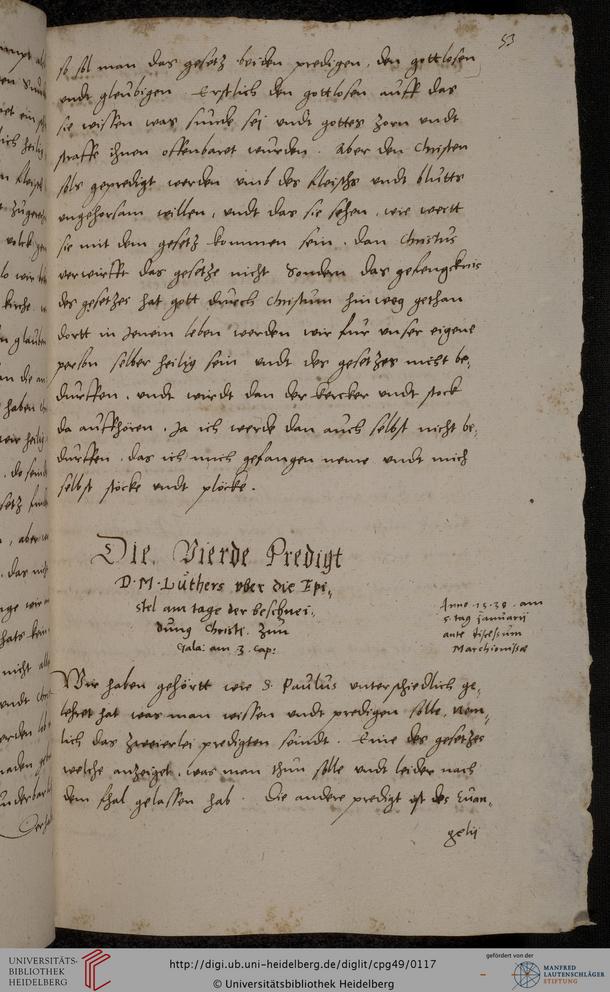 53
so sol man das gesetz beiden predigen, den gottlosen
undt gleubigen Erstlich den gottlosen auff das
sie wissen was sunde sei undt gottes zorn undt
straffe ihnen offenbaret wurden. Aber den Christen
sols gepredigt werden umb des fleischs undt blutts
ungehorsam willen, undt das sie sehen, wie weitt
sie mit dem gesetz kommen sein. dan Christus
verwirfft das gesetze nicht Sondern das gefengcknis
des gesetzes hat gott durch Christum hinweg gethan
dortt in Jenem leben werden wir fur unser eigene
person selber heilig sein undt des gesetzes nicht be,
durffen, undt wirdt dan der kercker undt stock
da auffhören. Ja ich werde dan auch selbst nicht be,
durffen, das ich mich gefangen neme undt mich
selbst stöcke undt plöcke.
Die Vierde Predigt
D. M. Luthers vber die Epi,
stel am tage der beschnei,
dung Christi. Zun
Gala: am 3. cap:
Anno 1538. am
5. tag januarii
ante discessum
Marchionissæ
Wir haben gehörtt wie S. Paulus unterschiedlich ge,
lehret hat was man wissen undt predigen solle, nem,
lich das zweierlei predigten seindt. Eine des gesetzes
welche anzeiget, was man thun solle undt leider nach
dem fhal gelassen hab. Die andere predigt ist des Euan,
gelii
UNIVERSITÄTS-
BIBLIOTHEK
HEIDELBERG
http://digi.ub.uni-heidelberg.de/diglit/cpg49/0117
© Universitätsbibliothek Heidelberg
gefördert von der
MANFRED
LAUTENSCHLÄGER
STIFTUNG